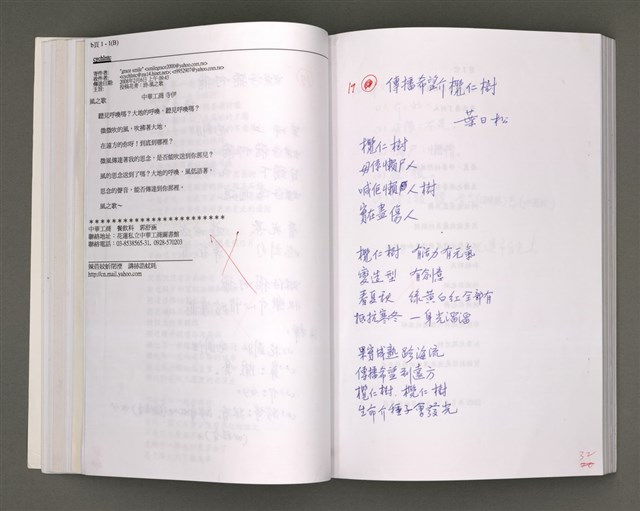 b頁 1 - 1(B)
cyclistc
寄件者:
收件者:
傳送日期: 2008年2月6日 上午 08:43
主旨: 投稿花青，詩-風之歌
中華工商 寺伊
風之歌
聽見呼喚嗎？大地的呼喚，聽見呼喚嗎？
微微吹的風，吹拂著大地，
在遠方的你呀！到底到哪裡？
微風傳達著我的思念，是否能吹送到你那兒？
風的思念送到了嗎？大地的呼喚，風低語著。
思念的聲音，能否傳達到你那裡。
風之歌～
中華工商 餐飲科 郭舒涵
聯絡地址：花蓮私立中華工商圖書館
聯絡電話：03-8538565-31, 0928-570203
http://cn.mail.yahoo.com
17
傳播希望介欖仁樹
—葉日松
欖仁樹
毋係懶尸人
喊佢懶尸人樹
實在盡傷人
欖仁樹 有活力有元氣
變造型 有創意
春夏秋 綠黃白紅全都有
抵抗寒冬 一身光溜溜
果實成熟跈海流
傳播希望到遠方
欖仁樹 欖仁樹
生命介種子會發光
32